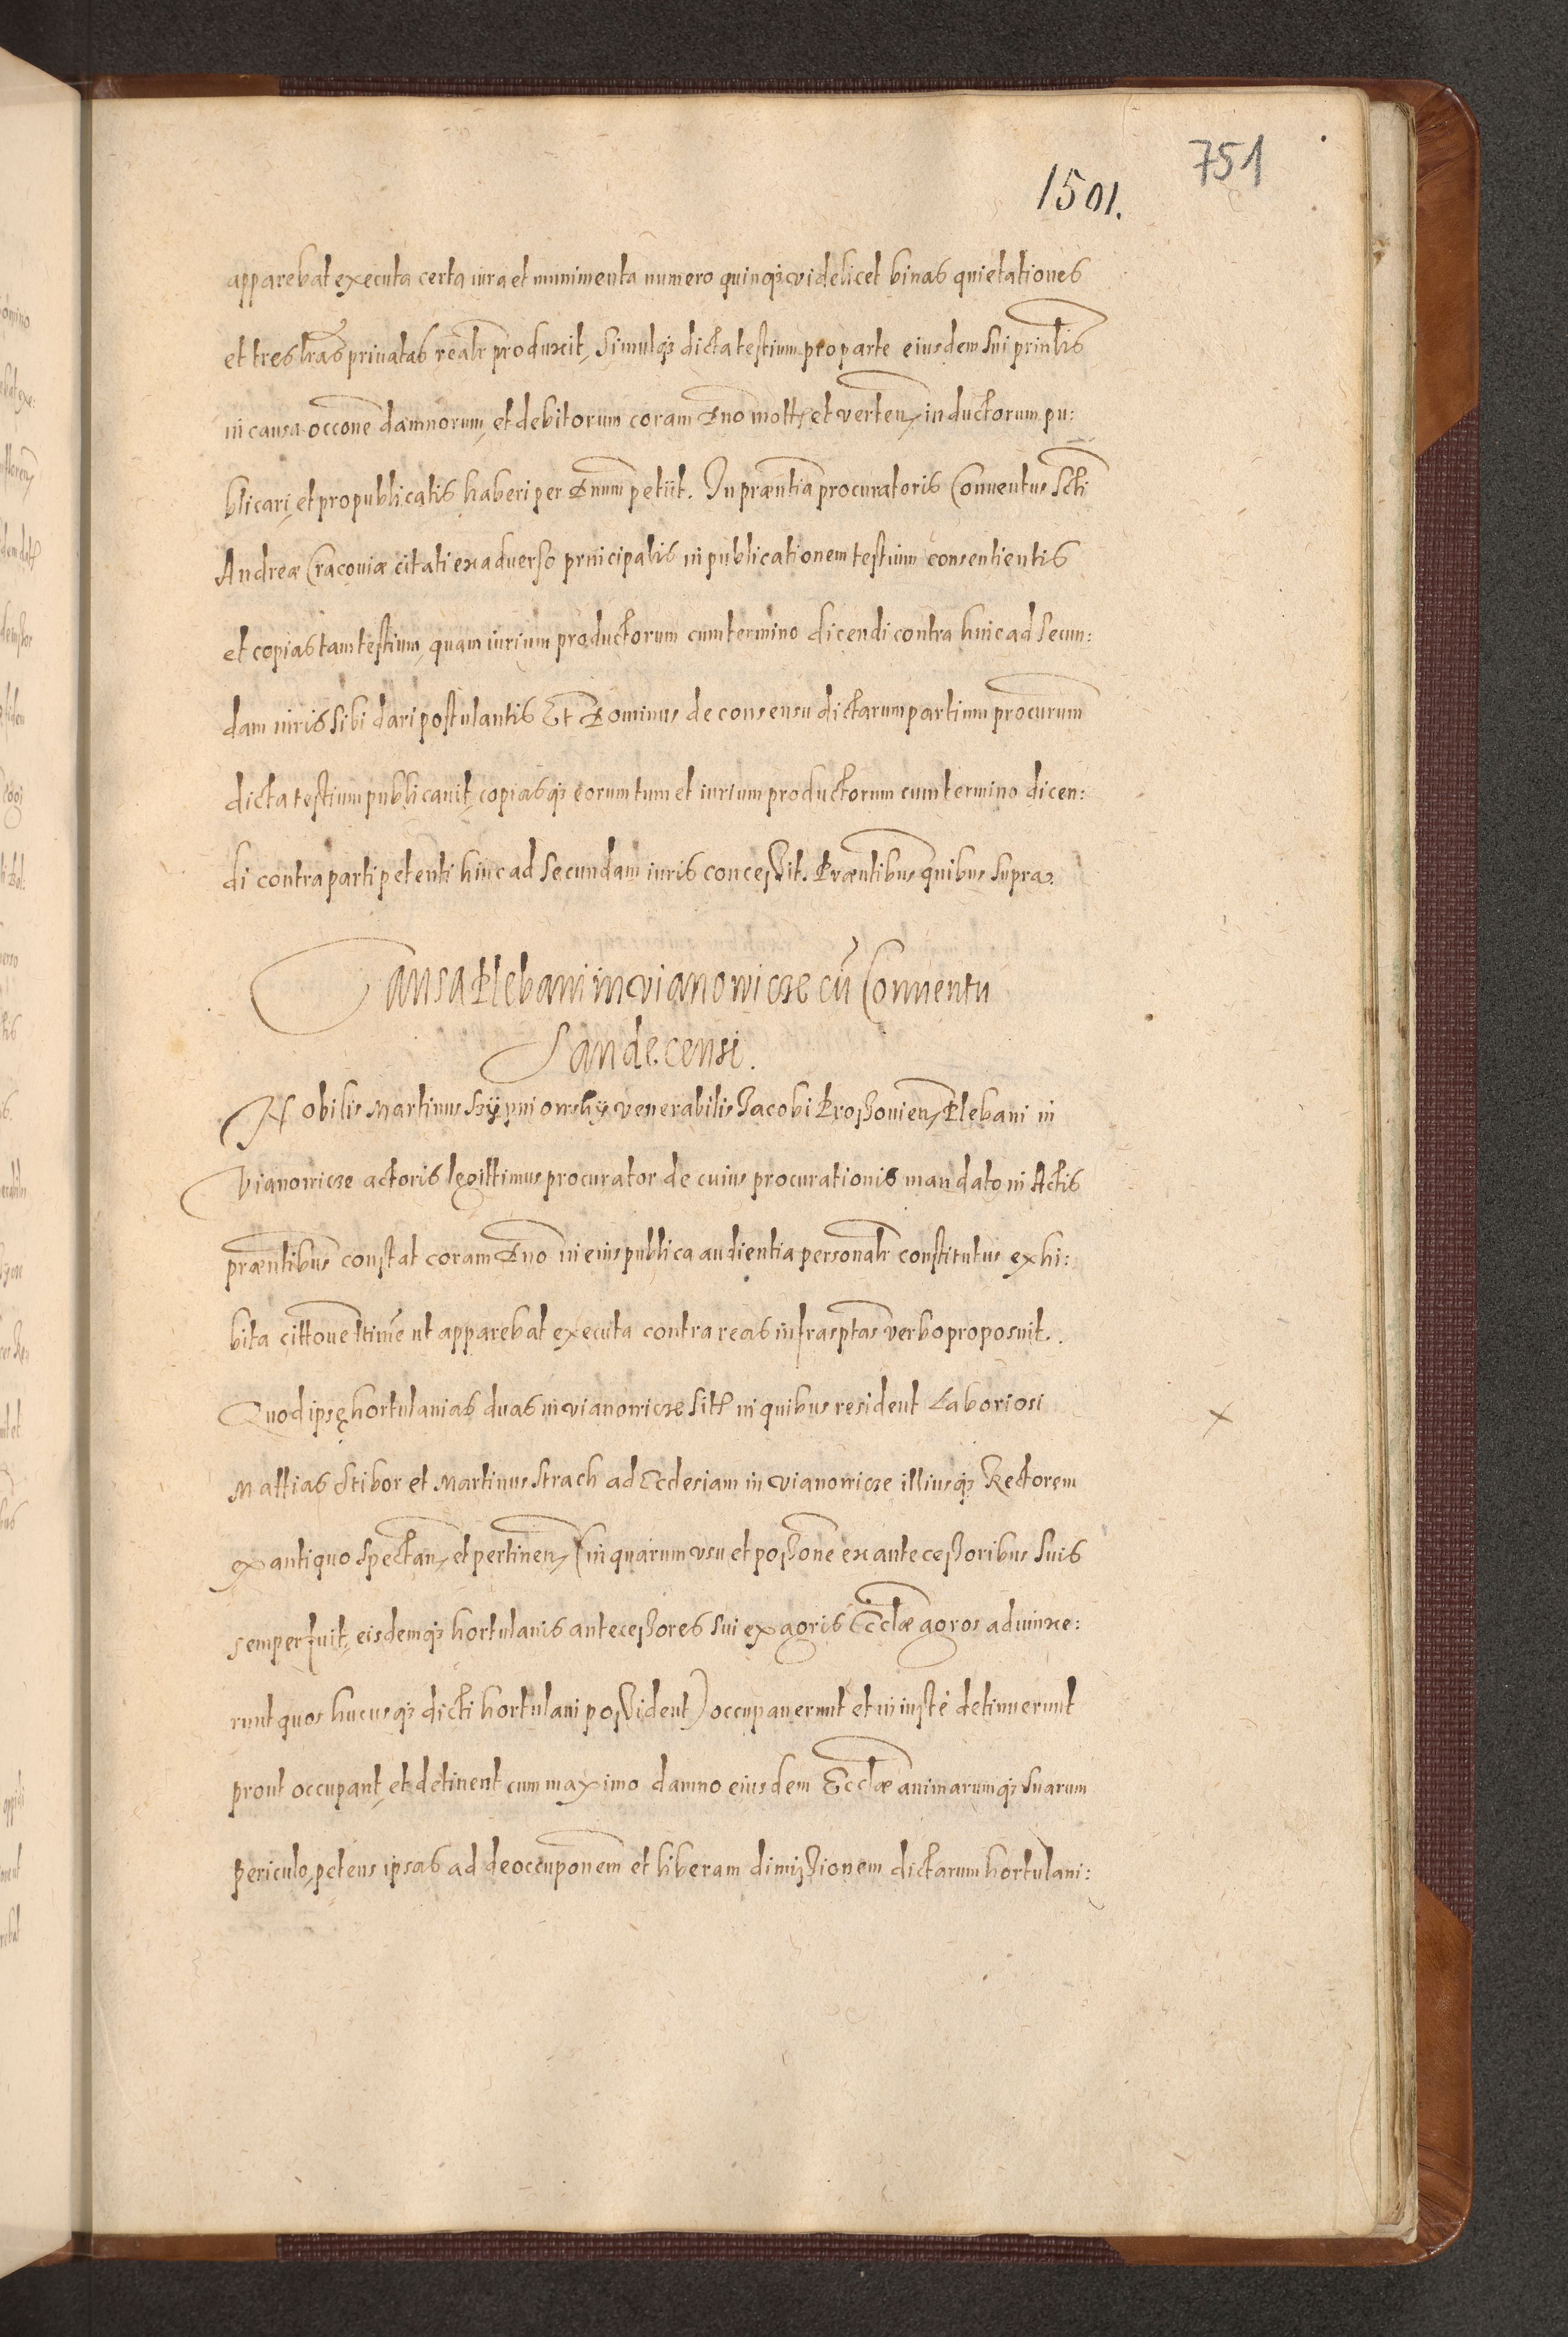 751
1501.
apparebat executa certa iura et munimenta numero quinq; videlicet binas quietationes
et tres lras privatas realr produxit, Simulq; dicta testium pro parte eiusdem sui prinlis
in causa occone damnorum, et debitorum coram Dno mott et verten, inductorum pu:
blicari, et pro publicatis haberi per Dnum petiit. In præntia procuratoris Conventus Scti
Andreæ Cracoviæ citati ex adverso principalis in publicationem testium consentientis
et copias tam testium, quam iurium productorum cum termino dicendi contra hinc ad secun:
dam iuris sibi dari postulantis Et Dominus de consensu dictarum partium procurum
dicta testium publicavit, copiasq; eorum tum et iurium productorum cum termino dicen:
di contra parti petenti hinc ad secundam iuris concessit. Præntibus quibus supra.
Causa Plebani in Vianowicze cū Conventu
Sandecensi.
Nobilis Martinus venerabilis Jacobi Prossovien, Plebani in
Vianowicze actoris legittimus procurator de cuius procurationis mandato in Actis
præntibus constat coram Dno in eius publica audientia personalr constitutus exhi:
bita cittone ltime ut apparebat executa contra reas infrasptas verbo proposuit.
Quod ipsę hortulanias duas in Vianowicze sit in quibus resident Laboriosi
Mattias Stibor et Martinus Strach ad Ecclesiam in Vianowicze illiusq; Rectorem
ex antiquo spectan, et pertinen, (in quarum usu et possone ex antecessoribus suis
semper fuit, eisdemq; hortulanis antecessores sui ex agris Ecclæ agros adiunxe:
runt quos hucusq; dicti hortulani possident) occupaverunt et iniustè detinuerunt
prout occupant, et detinent cum maximo damno eiusdem Ecclæ animarumq; suarum
periculo, petens ipsas ad deoccuponem et liberam dimissionem dictarum hortulani: